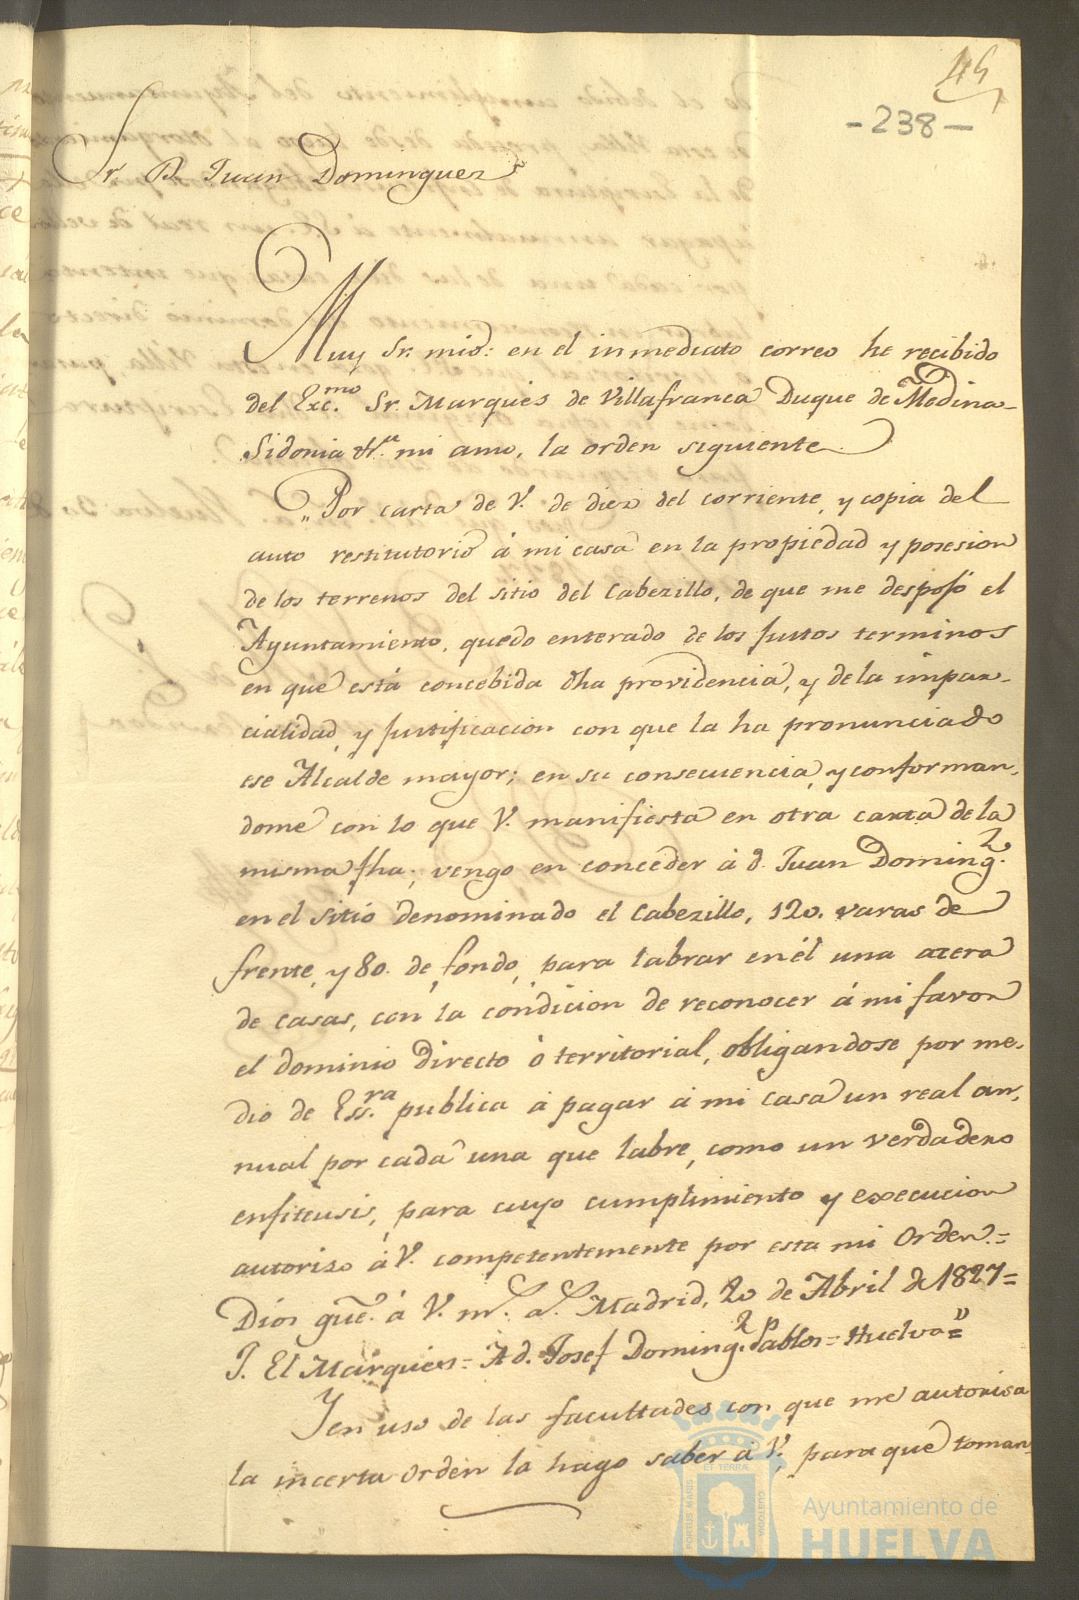 45
-238-
Sr. D. Juan Dominguez
Muy Sr. mio: en el inmediato correo he recibido
del Exc.mo Sr. Marques de Villafranca Duque de Medina-
Sidonia &.a mi amo, la orden siguiente.
"Por carta de V. de diez del corriente, y copia del
auto restitutorio á mi casa en la propiedad y posesion
de los terrenos del sitio del Cabezillo, de que me desposó el
Ayuntamiento, quedo enterado de los justos terminos
en que está concebida dha providencia, y de la impar-
cialidad, y justificacion con que la ha pronunciado
ese Alcalde mayor; en su consecuencia, y conforman-
dome con lo que V. manifiesta en otra carta de la
misma fha, vengo en conceder á d. Juan Doming.z
en el sitio denominado el Cabezillo, 120. varas de
frente, y 80. de fondo, para labrar en él una acera
de casas, con la condicion de reconocer á mi favor
el dominio directo ó territorial, obligandose por me-
dio de Ess.ra publica á pagar á mi casa un real an-
nual por cada una que labre, como un verdadero
enfiteusis, para cuyo cumplimiento y execucion
autorizo á V. competentemente por esta mi Orden.=
Dios gue. á V. m.s a.s Madrid, 20 de Abril de 1827=
El Marques= A d. Josef Doming.z Pablos= Huelva="
Y en uso de las facultades con que me autoriza
la incerta Orden la hago saber á V. para que toman-
PORTUS MARIS
ET TERRAE
CUSTODIA
Ayuntamiento de
HUELVA